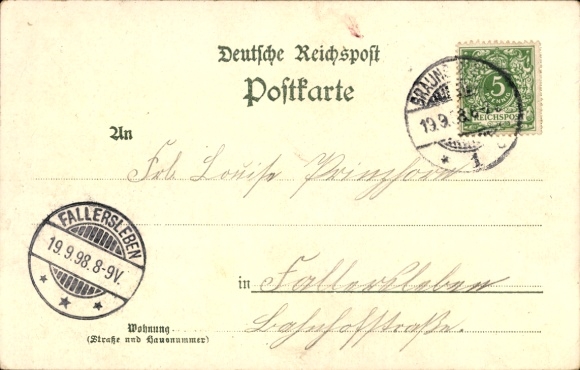 Deutsche Reichspost
Postkarte
5
REICHSPOST
19.9.98.
1
An
Frl. Louise Prinzhorn
FALLERSLEBEN
19.9.98.8-9V.
in Fallersleben
Bahnhofstraße.
Wohnung
(Straße und Hausnummer)